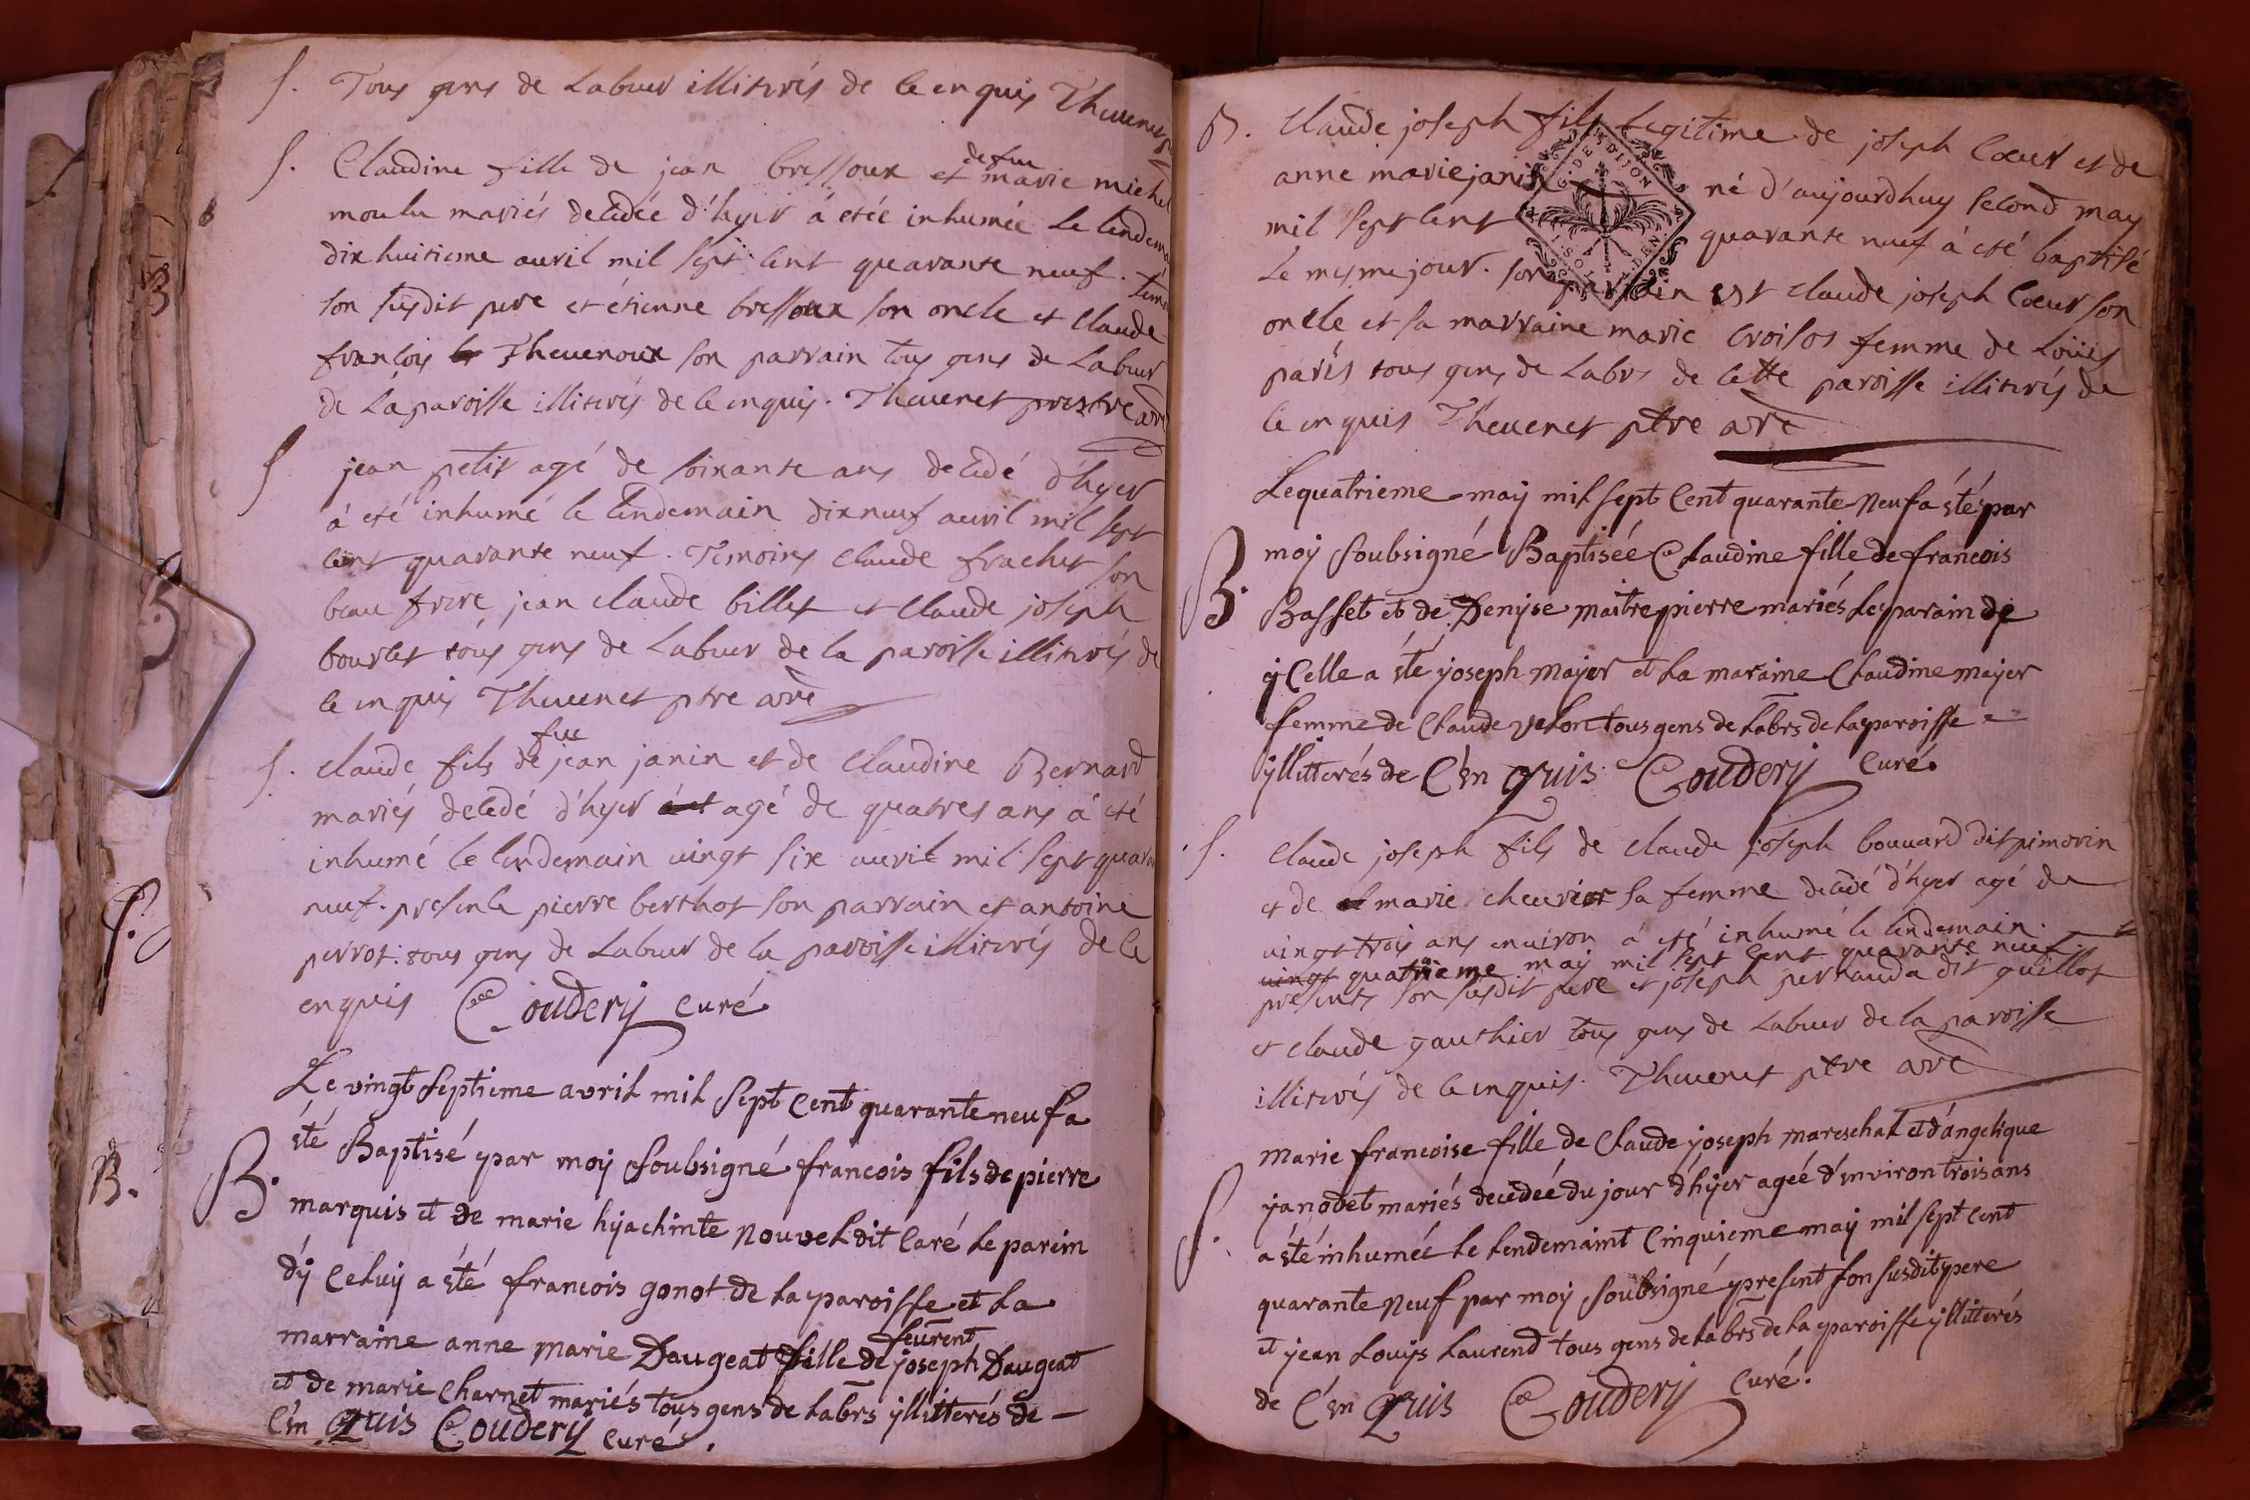 S. Tous gens de Labeur illiterés de ce enquis Thevenet
S. Claudine fille de jean bressoux et defue marie michel
moulu mariés decedée d'hyer á etée inhumée le lendem
dix huitieme auril mil sept cent quarante neuf.
son susdit pere et étienne bressoux son oncle et claude
françois Thevenoux son parrain tous gens de Labeur
de Laparoisse illiterés de ce enquis. Thevenet prestre
S jean petit agé de soixante ans decedé d'hyer
á eté inhumé le lendemain dix neuf auril mil sept
cent quarante neuf. Temoins claude frachet son
beau frere, jean claude billet et claude joseph
bourlet tous gens de Labeur de la paroisse illiterés de
ce enquis Thevenet ptre
S. claude fils de fue jean janin et de Claudine Bernard
mariés decedé d'hyer agé de quatres ans á eté
inhumé le lendemain vingt six auril mil sept quaran
neuf. presence pierre berthot son parrain et antoine
perrot. tous gens de Labeur de la paroisse illiterés de ce
enquis Coudery curé
Le vingt septieme avril mil sept cent quarante neuf a
B. été Baptisé par moy soubsigné francois fils de pierre
marquis et de marie hyachinte nouvel dit Caré le parein
d'y celuy a été francois gonot de la paroisse et la
marraine anne marie Daugeat fille de joseph Daugeat
et de marie charnet mariés tous gens de labrs yllitterés de
c'en quis Coudery curé.
B. Claude joseph fils legitime de joseph Cœur et de
anne marie janin né d'aujourdhuy second may
mil sept cent quarante neuf á eté baptisé
G. DE DIJON
I. SOL DEN.
Le mesme jour. son parrain est claude joseph Cœur son
oncle et sa marraine marie Croisot femme de Loüis
paris tous gens de Labrs de cette paroisse illiterés de
ce enquis Thevenet ptre
Le quatrieme may mil sept cent quarante neuf a été par
moy soubsigné Baptisée Claudine fille de francois
B. Basset et de Denyse maitrepierre mariés Le parain de
y celle a été joseph majer et la maraine Claudine majer
femme de Claude tous gens de labrs de la paroisse
yllitterés de c'en quis Coudery Curé.
S. Claude joseph fils de claude joseph bouuard dit pimorin
et de marie cheurier sa femme decedé d'hyer agé de
vingt trois ans enuiron á eté inhumé le lendemain
vingt quatrieme may mil sept cent quarante neuf
presents son susdit pere et joseph pernauda dit guillot
et claude gauthier tous gens de Labeur de la paroisse
illiterés de ce enquis. Thevenet ptre
Marie francoise fille de Claude joseph mareschal et d'angelique
janodet mariés decedeé du jour d'hyer ageé d'environ trois ans
S. a été inhumée le lendemaint cinquieme may mil sept cent
quarante neuf par moy soubsigné present son susdit pere
et jean Louys Laurend tous gens de labrs de la paroisse yllitterés
de c'en quis Coudery curé.